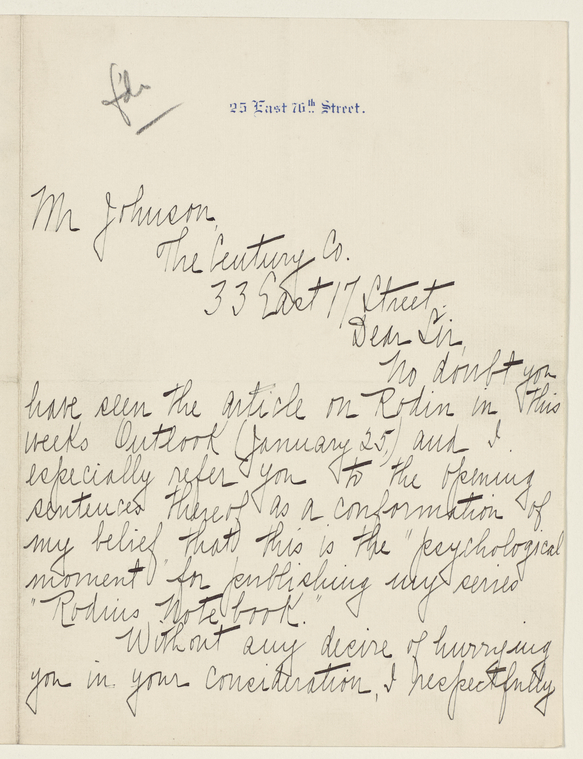 25 East 76th Street.
Mr Johnson,
The Century Co.
33 East 17 Street.
Dear Sir,
No doubt you
have seen the article on Rodin in this
weeks Outlook (January 25,) and I
especially refer you to the opening
sentences thereof as a conformation of
my belief that this is the "psychological
moment" for publishing my series
"Rodins Note book."
Without any decire of hurrying
you in your concideration, I respectfully